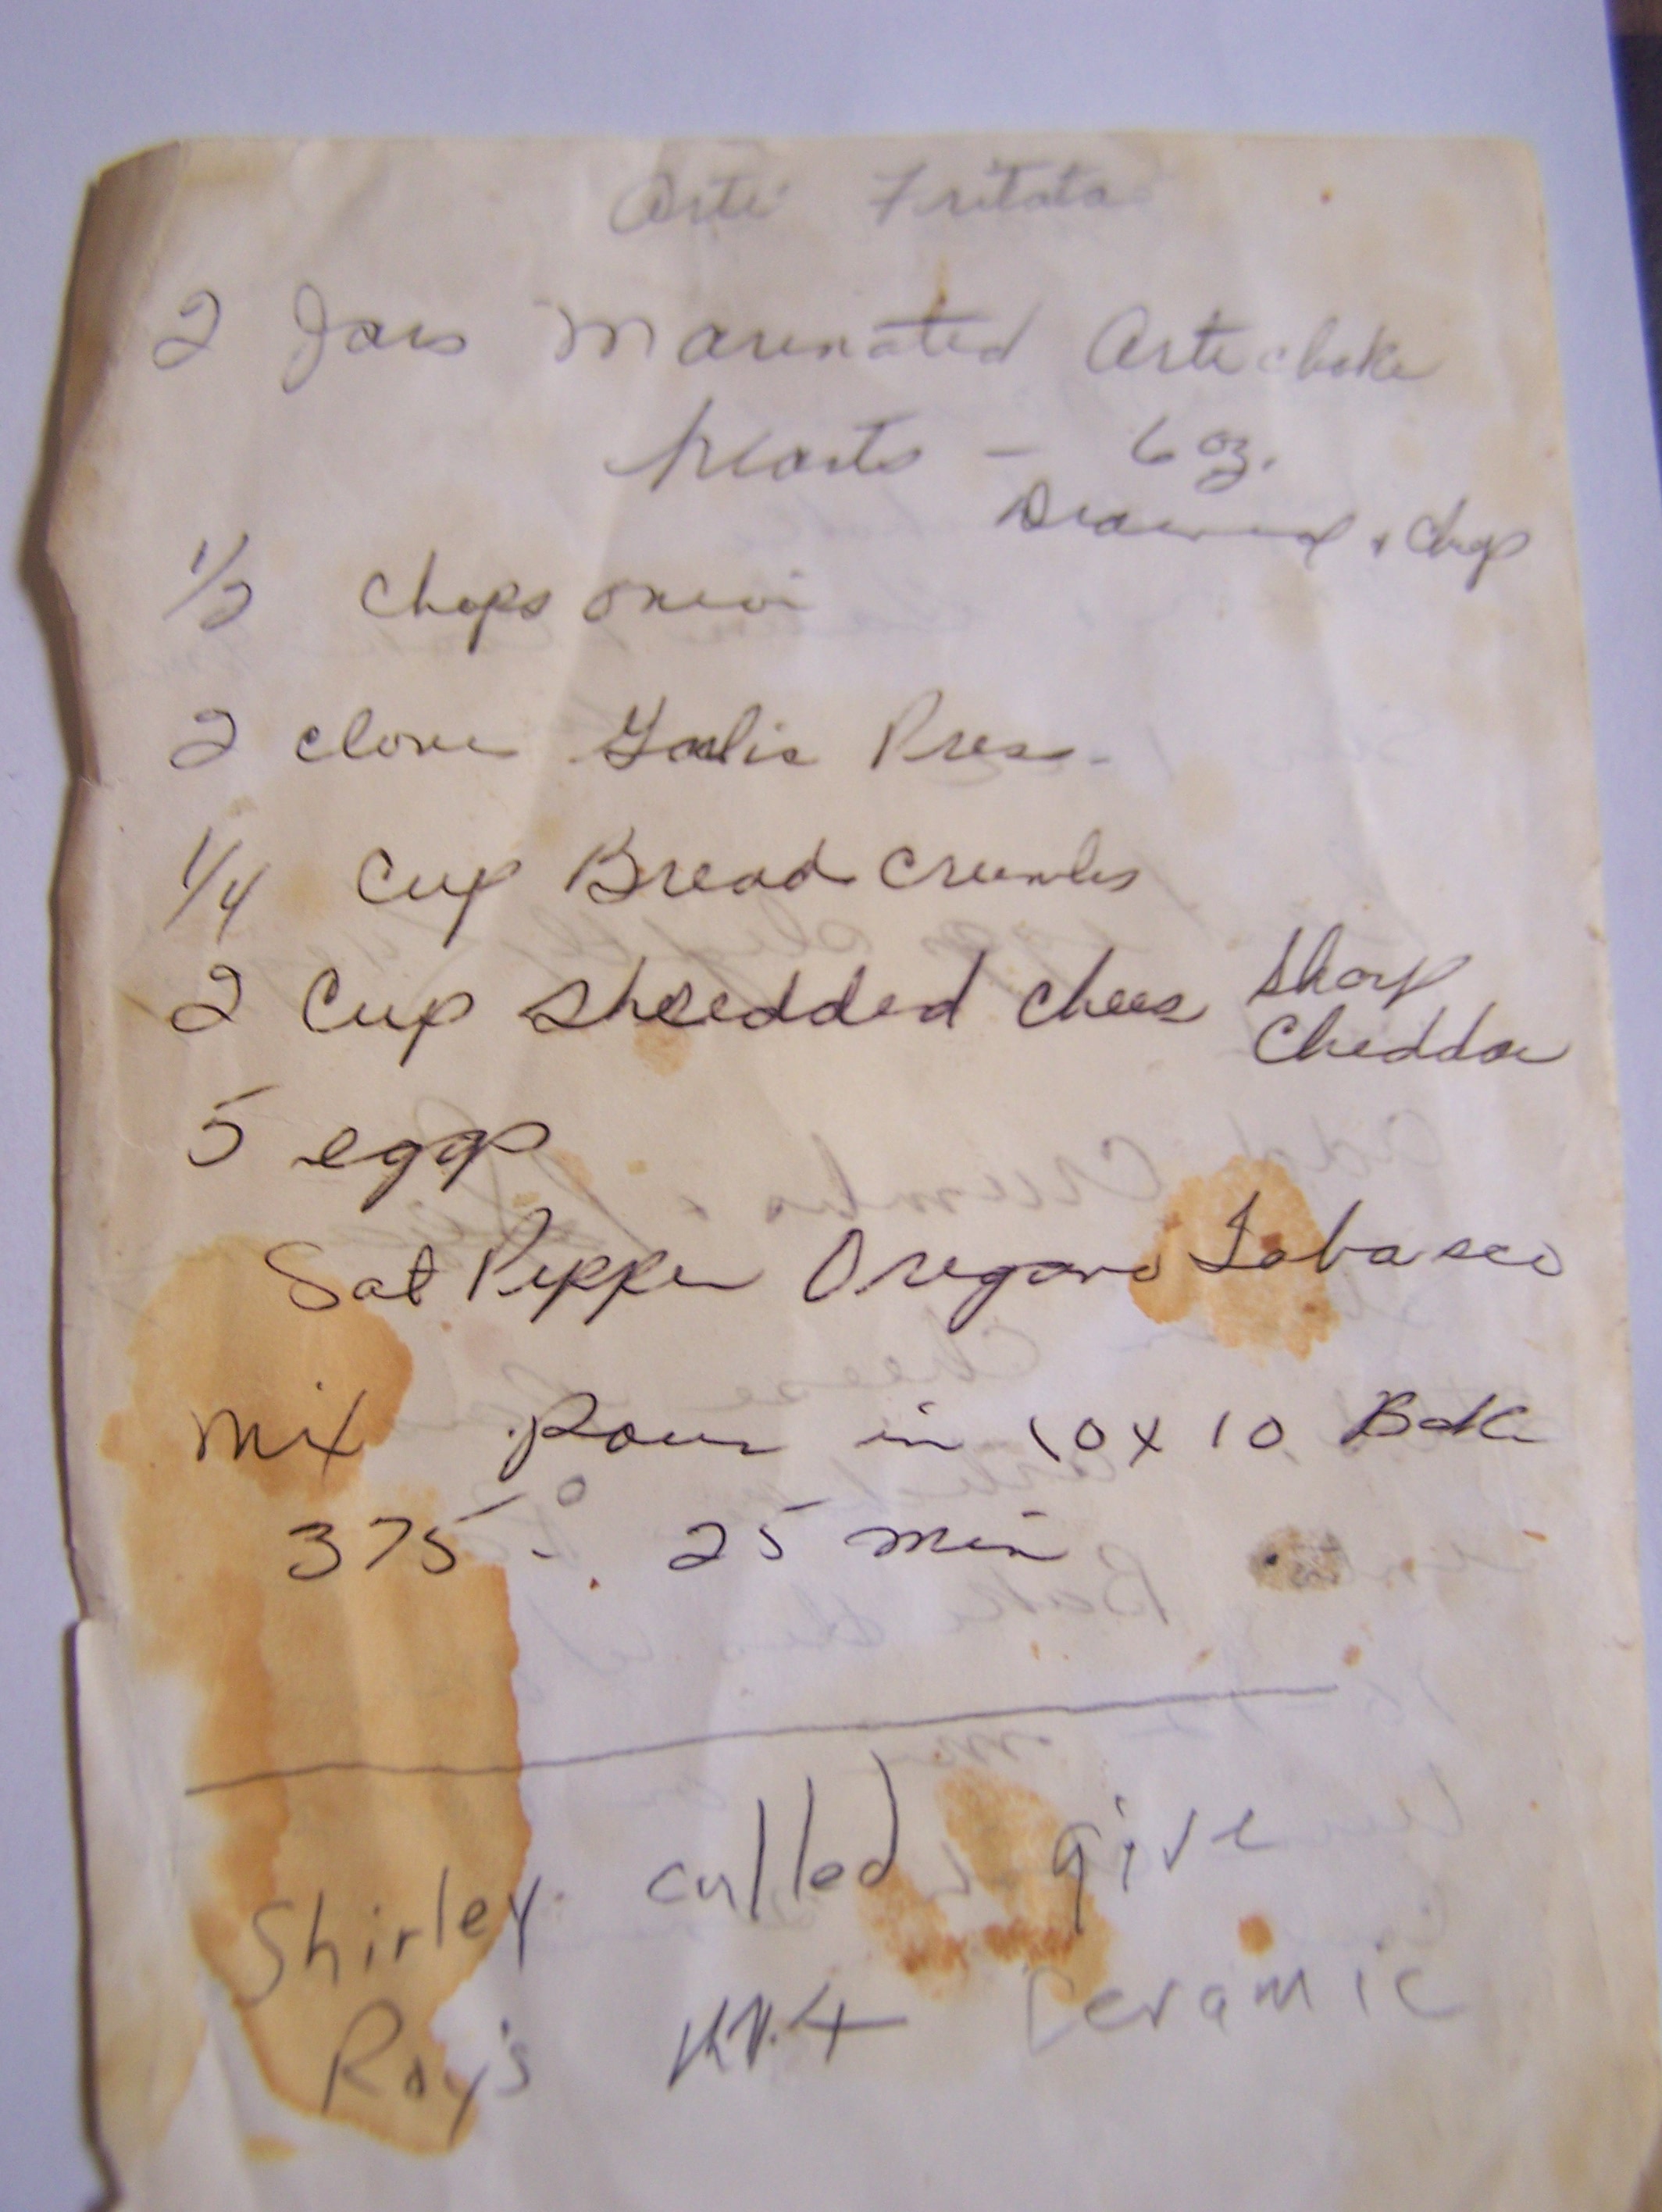 Arti Fritata
2 Jars Marinated Artichoke
hearts - 6 oz.
Drained + Chop
1/2 Chops onion
2 clove Garlic Press-
1/4 Cup Bread crumbs
2 Cup Shredded Chees Sharp
Cheddar
5 eggs
Salt Pepper Oregano Tobasco
Mix Pour in 10 x 10 Bake
375° - 25 min
Shirley called give
Roy's Ceramic